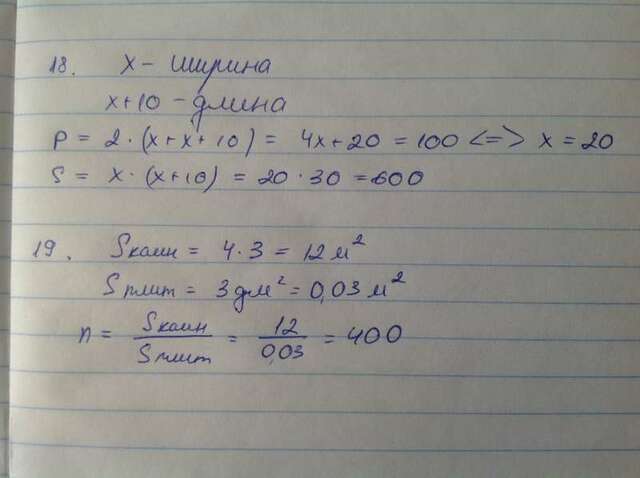 18. x - ширина
x+10 - длина
P = 2·(x+x+10) = 4x+20 = 100 <=> x = 20
S = x·(x+10) = 20·30 = 600
19. Sкомн = 4·3 = 12 м²
Sплит = 3 дм² = 0,03 м²
n = Sкомн / Sплит = 12 / 0,03 = 400